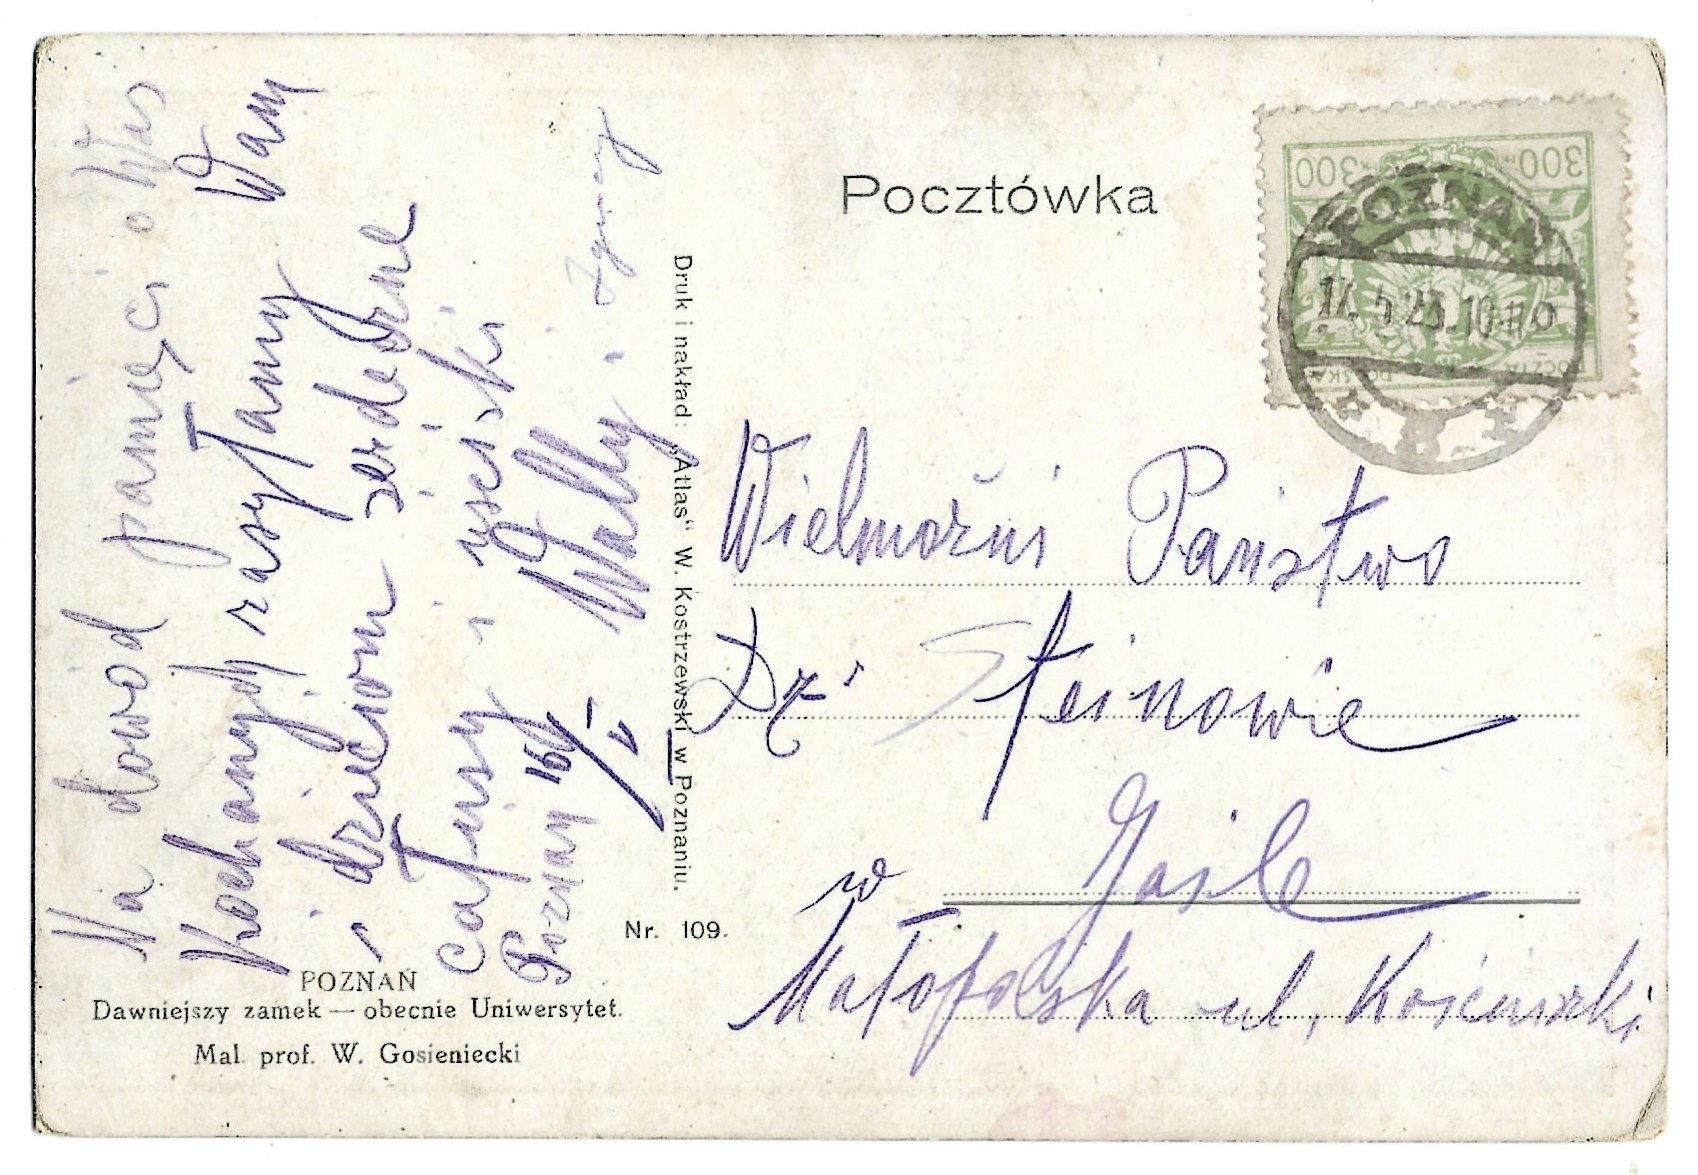 Pocztówka
300 300
POCZTA POLSKA
POZNAŃ
17. 5 23. 10
* 8 *
Na dowód pamięci o Was
Kochanych zasyłamy Wam
i dzieciom serdeczne
całusy i uściski
Willy.
Poznań 16/V
Druk i nakład: „Atlas“ W. Kostrzewski w Poznaniu.
Wielmożni Państwo
Dr Steinowie
w Jaśle
Małopolska ul. Kościuszki
Nr. 109.
POZNAŃ
Dawniejszy zamek — obecnie Uniwersytet.
Mal. prof. W. Gosieniecki